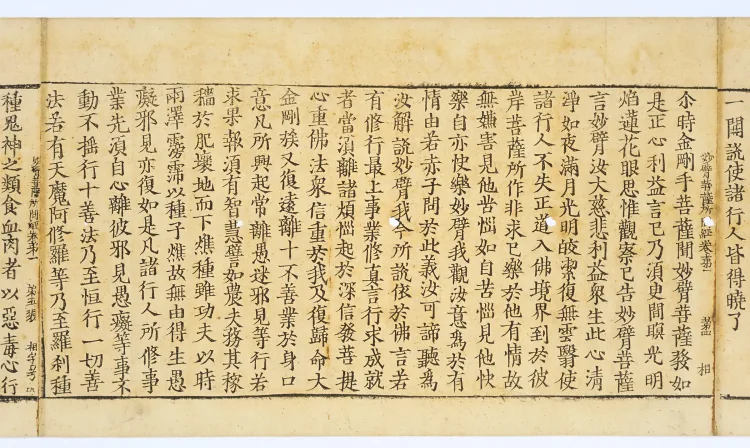 一開說使諸行人皆得曉了
妙臂菩薩所問經卷第一 相
尒時金剛手菩薩聞妙臂菩薩發如
是正心利益言已乃須臾間瞑光明
焰蓮花眼思惟觀察已告妙臂菩薩
言妙臂汝大慈悲利益衆生此心清
淨如夜滿月光明皎潔復無雲翳使
諸行人不失正道入佛境界到於彼
岸菩薩所作非求已樂於他有情故
無嫌害見他苦惱如自苦惱見他快
樂自亦快樂妙臂我觀汝意爲於有
情由若赤子問於此義汝可諦聽爲
汝解說妙臂我今所說依於佛言若
有修行最上事業修真言行求成就
者當須離諸煩惱起於深信發菩提
心重佛法衆信重於我及復歸命大
金剛族又復遠離十不善業於身口
意凡所興起常離愚迷邪見等行若
求果報須有智慧譬如農夫務其稼
穡於肥壤地而下燋種雖功夫以時
雨澤霶霈以種子燋故無由得生愚
癡邪見亦復如是凡諸行人所修事
業先須自心離彼邪見愚癡等事不
動不搖行十善法乃至恒行一切善
法若有天魔阿修羅等乃至羅刹種
妙臂菩薩所問經卷第一 第五張 相字号
種鬼神之類食血肉者以惡毒心行